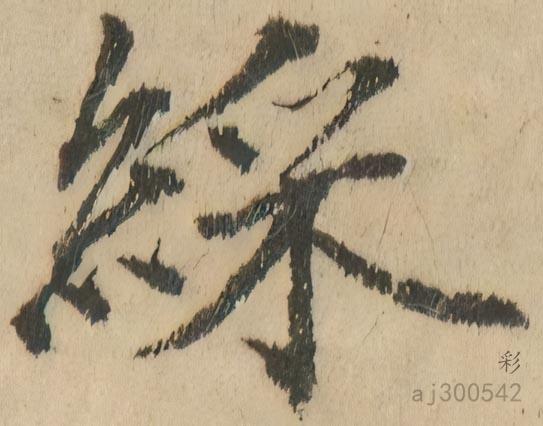 綵
彩
aj300542